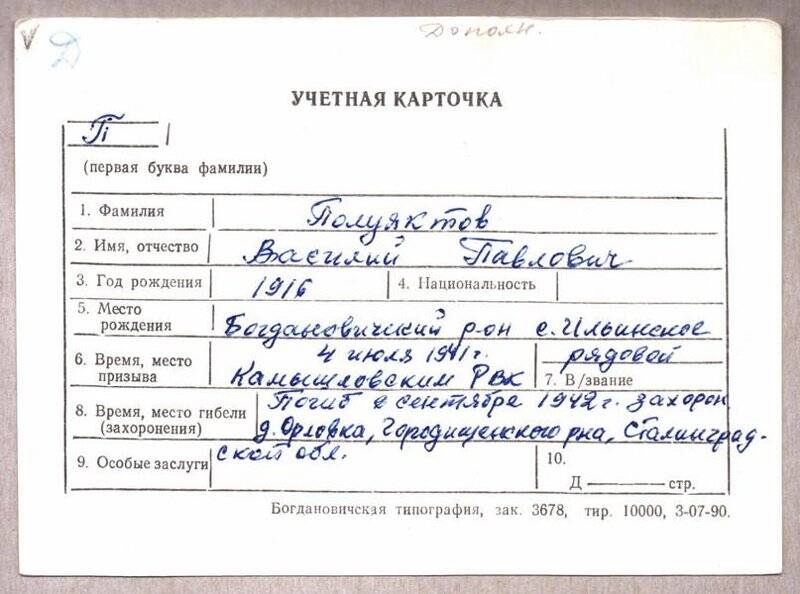 V Д Дополн.
УЧЕТНАЯ КАРТОЧКА
П
(первая буква фамилии)
1. Фамилия Полуяктов
2. Имя, отчество Василий Павлович
3. Год рождения 1916 4. Национальность
5. Место
рождения Богдановичский р-он с. Ильинское
6. Время, место 4 июля 1941г. рядовой
призыва Камышловским РВК 7. В/звание
8. Время, место гибели Погиб 2 сентября 1942г. захорон
(захоронения) д. Орловка, Городищенского рна, Сталинград-
9. Особые заслуги ской обл. 10.
Д ——— стр.
Богдановичская типография, зак. 3678, тир. 10000, 3-07-90.